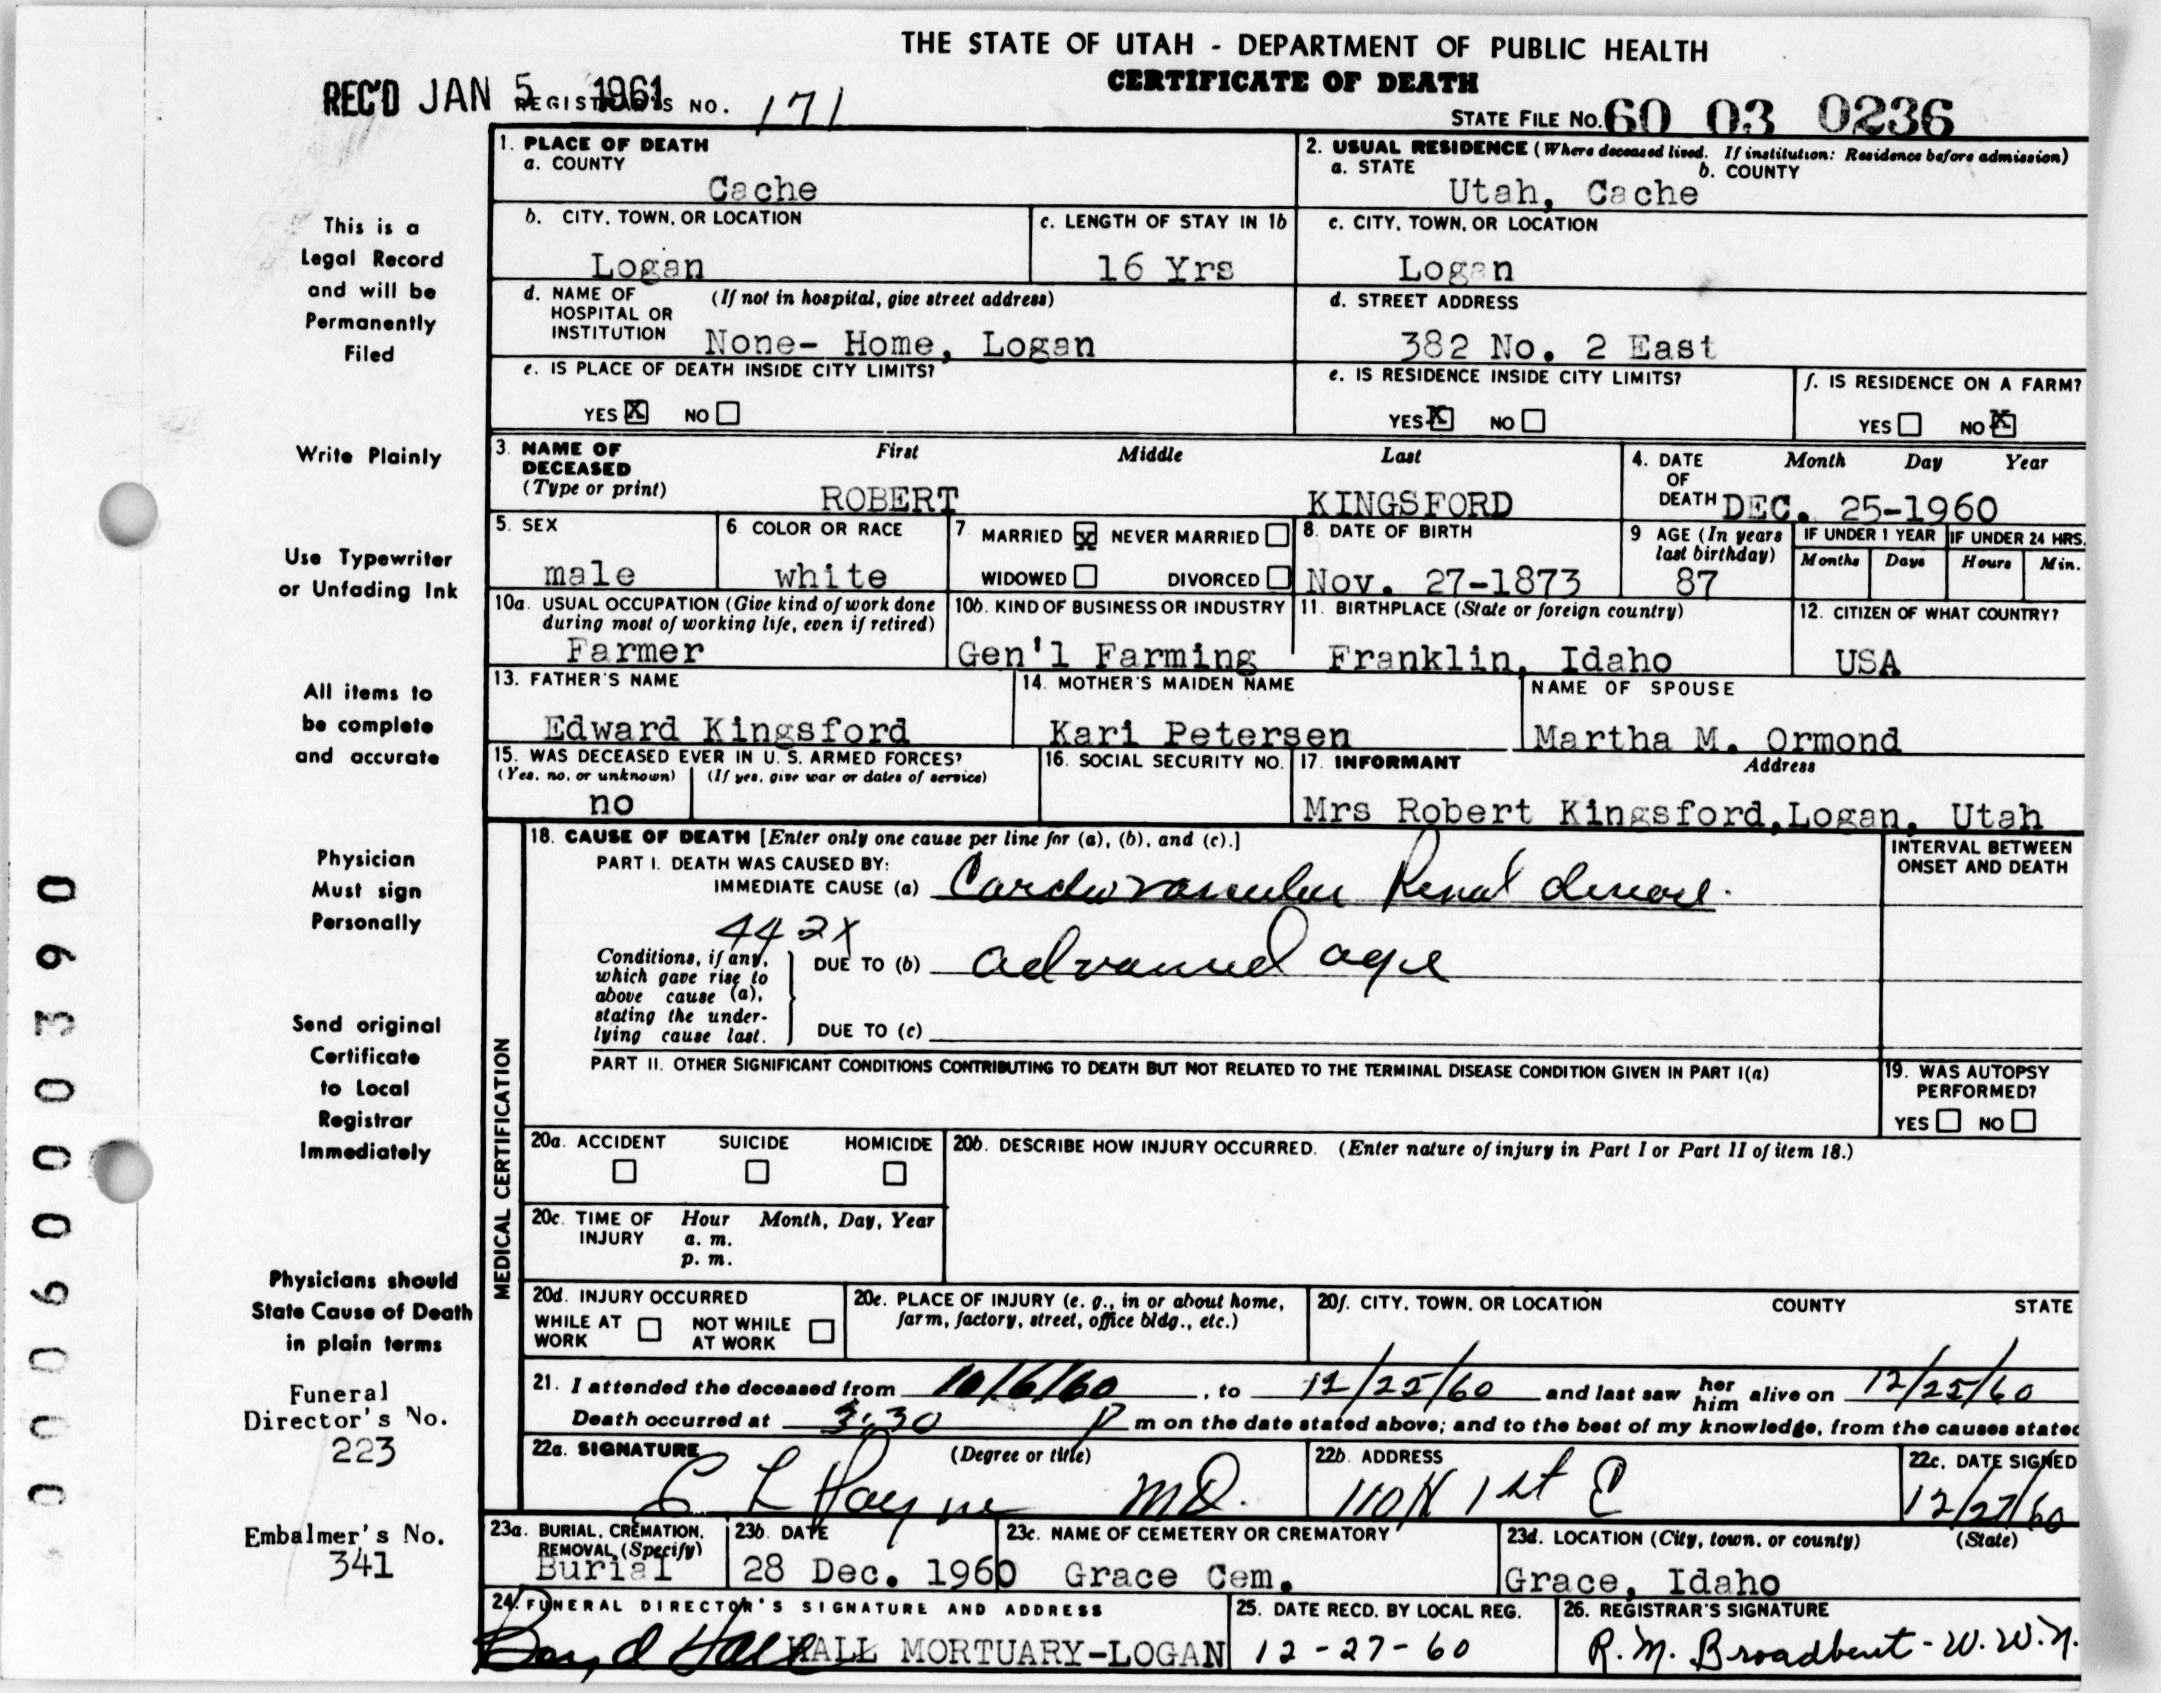 THE STATE OF UTAH - DEPARTMENT OF PUBLIC HEALTH
CERTIFICATE OF DEATH
REC'D JAN 5 1961
REGISTRAR'S NO. 171
STATE FILE No. 60 03 0236
1. PLACE OF DEATH
a. COUNTY
Cache
2. USUAL RESIDENCE (Where deceased lived. If institution: Residence before admission)
a. STATE b. COUNTY
Utah, Cache
b. CITY, TOWN, OR LOCATION
Logan
c. LENGTH OF STAY IN 1b
16 Yrs
c. CITY, TOWN, OR LOCATION
Logan
d. NAME OF HOSPITAL OR INSTITUTION (If not in hospital, give street address)
None- Home, Logan
d. STREET ADDRESS
382 No. 2 East
e. IS PLACE OF DEATH INSIDE CITY LIMITS?
YES X NO
e. IS RESIDENCE INSIDE CITY LIMITS?
YES X NO
f. IS RESIDENCE ON A FARM?
YES NO X
3. NAME OF DECEASED (Type or print)
First Middle Last
ROBERT KINGSFORD
4. DATE OF DEATH Month Day Year
DEC. 25-1960
5. SEX
male
6 COLOR OR RACE
white
7 MARRIED X NEVER MARRIED
WIDOWED DIVORCED
8. DATE OF BIRTH
Nov. 27-1873
9 AGE (In years last birthday)
87
IF UNDER 1 YEAR
Months Days
IF UNDER 24 HRS.
Hours Min.
10a. USUAL OCCUPATION (Give kind of work done during most of working life, even if retired)
Farmer
10b. KIND OF BUSINESS OR INDUSTRY
Gen'l Farming
11. BIRTHPLACE (State or foreign country)
Franklin, Idaho
12. CITIZEN OF WHAT COUNTRY?
USA
13. FATHER'S NAME
Edward Kingsford
14. MOTHER'S MAIDEN NAME
Kari Petersen
NAME OF SPOUSE
Martha M. Ormond
15. WAS DECEASED EVER IN U. S. ARMED FORCES?
(Yes, no, or unknown) (If yes, give war or dates of service)
no
16. SOCIAL SECURITY NO.
17. INFORMANT Address
Mrs Robert Kingsford, Logan, Utah
MEDICAL CERTIFICATION
18. CAUSE OF DEATH [Enter only one cause per line for (a), (b), and (c).]
PART I. DEATH WAS CAUSED BY:
IMMEDIATE CAUSE (a) Cardiovascular Renal disease.
442X
Conditions, if any, which gave rise to above cause (a), stating the underlying cause last.
DUE TO (b) advanced age
DUE TO (c)
INTERVAL BETWEEN ONSET AND DEATH
PART II. OTHER SIGNIFICANT CONDITIONS CONTRIBUTING TO DEATH BUT NOT RELATED TO THE TERMINAL DISEASE CONDITION GIVEN IN PART I(a)
19. WAS AUTOPSY PERFORMED?
YES NO
20a. ACCIDENT SUICIDE HOMICIDE
20b. DESCRIBE HOW INJURY OCCURRED. (Enter nature of injury in Part I or Part II of item 18.)
20c. TIME OF INJURY Hour Month, Day, Year
a. m.
p. m.
20d. INJURY OCCURRED
WHILE AT WORK NOT WHILE AT WORK
20e. PLACE OF INJURY (e. g., in or about home, farm, factory, street, office bldg., etc.)
20f. CITY, TOWN, OR LOCATION COUNTY STATE
21. I attended the deceased from 10/6/60, to 12/25/60 and last saw her him alive on 12/25/60
Death occurred at 3:30 P m on the date stated above; and to the best of my knowledge, from the causes stated
22a. SIGNATURE (Degree or title)
C L Payne MD.
22b. ADDRESS
110 N 1st E
22c. DATE SIGNED
12/27/60
23a. BURIAL, CREMATION, REMOVAL (Specify)
Burial
23b. DATE
28 Dec. 1960
23c. NAME OF CEMETERY OR CREMATORY
Grace Cem.
23d. LOCATION (City, town, or county) (State)
Grace, Idaho
24. FUNERAL DIRECTOR'S SIGNATURE AND ADDRESS
Boyd Hall HALL MORTUARY-LOGAN
25. DATE RECD. BY LOCAL REG.
12-27-60
26. REGISTRAR'S SIGNATURE
R. M. Broadbent - W. W. N.
This is a
Legal Record
and will be
Permanently
Filed
Write Plainly
Use Typewriter
or Unfading Ink
All items to
be complete
and accurate
Physician
Must sign
Personally
Send original
Certificate
to Local
Registrar
Immediately
Physicians should
State Cause of Death
in plain terms
Funeral
Director's No.
223
Embalmer's No.
341
000600390